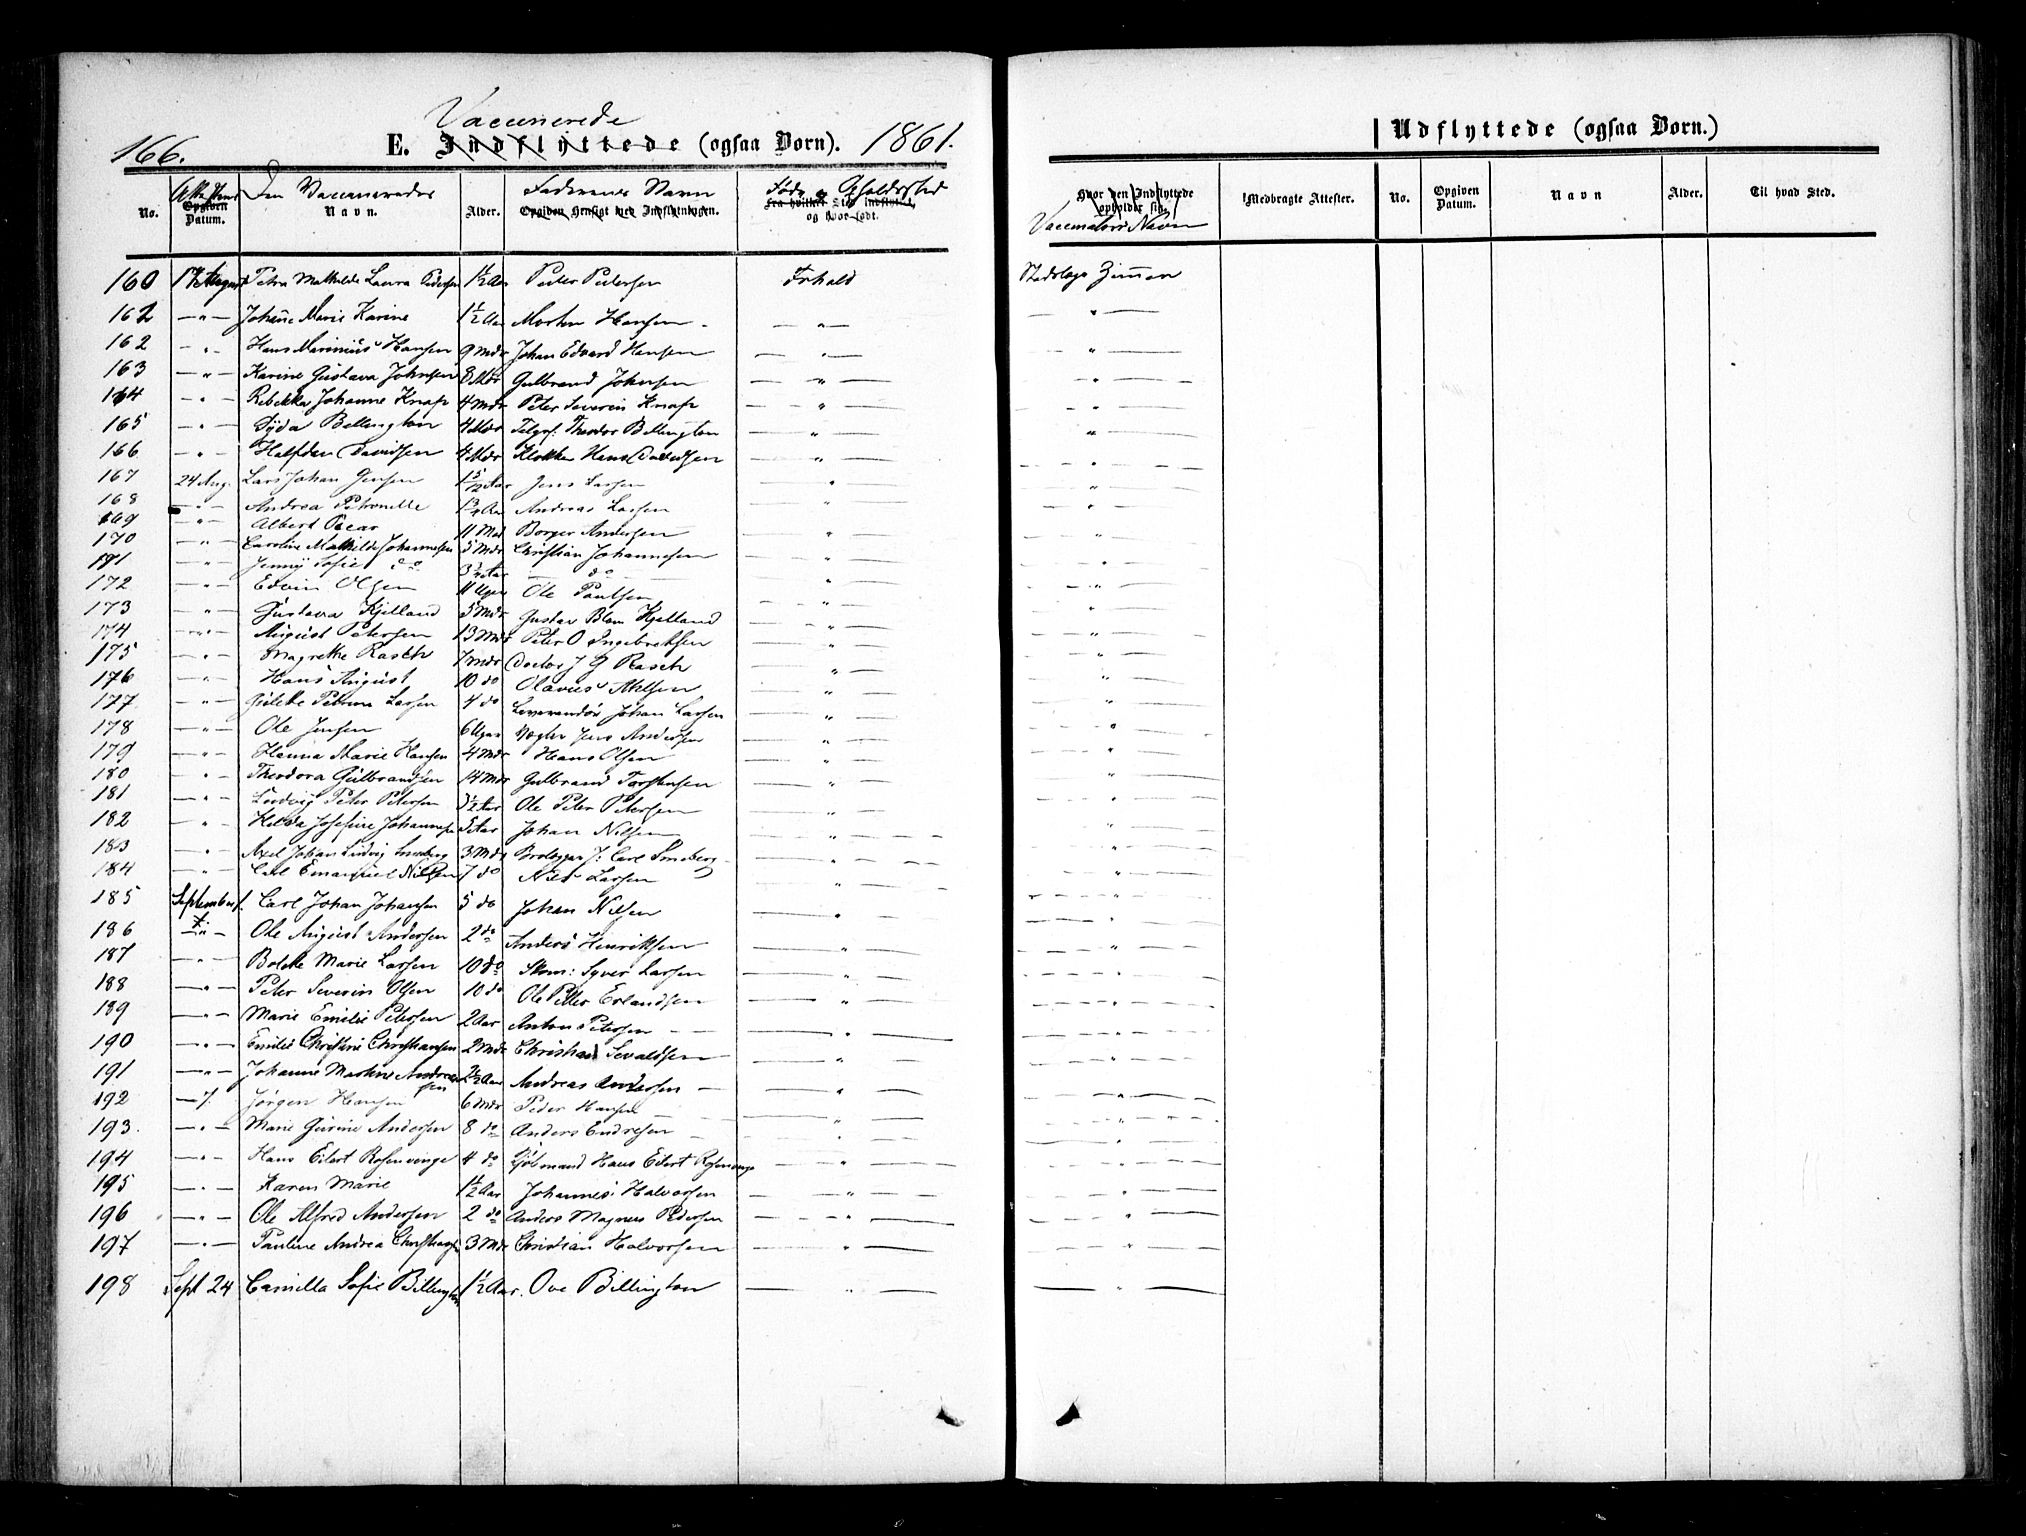 166.
Vaccinerede
E. Indflyttede (ogsaa Børn). 1861.
No. Attestens Opgiven Datum. Den Vaccineredes Navn. Alder. Faderens Navn Opgiven Hensigt med Indflytningen. Føde og Opholdssted Fra hvilket Sted indflyttet, og hvor født.
160 17 August Petra Mathilde Laura Pedersen 1½ Aar Peder Pedersen Frhald
162 — " — Johanne Marie Karine 1½ Aar Morten Hansen — " —
162 — " — Hans Marinius Hansen 9 Mdr Johan Edvard Hansen — " —
163 — " — Karine Gustava Johnsen 8 Mdr Gulbrand Johnsen — " —
164 — " — Rebekka Johanne Knap 4 Mdr Peter Severin Knap — " —
165 — " — Billington 4 Mdr Telgrf. Theodor Billington — " —
166 — " — Halfdan Davidsen 4 Mdr Klokker Hans Davidsen — " —
167 24 Aug. Lars Johan Jensen Jens Larsen "
168 — " — Andrea Petronelle Andreas Larsen — " —
169 — " — Albert Oscar 11 Mdr Borger Andersen — " —
170 — " — Caroline Mathilde Johannesen 5 Mdr Christian Johannesen — " —
171 — " — Jenny Sofie do do — " —
172 — " — Edvin Olsen 11 Uger Ole Paulsen — " —
173 — " — Gustava Kjelland 5 Mdr Gustav Blom Kjelland — " —
174 — " — August Petersen 13 Mdr Peter O Ingebretsen — " —
175 — " — Magrethe Rasch 7 Mdr Doctor J G Rasch — " —
176 — " — Hans August 10 do Olavus Nilsen — " —
177 — " — Petrine Larsen 4 do Leverandør Johan Larsen — " —
178 — " — Ole Jensen 6 Uger Vogter Jens Andersen — " —
179 — " — Hanna Marie Hansen 4 Mdr Hans Olsen — " —
180 — " — Theodora Gulbrandsen 14 Mdr Gulbrand Torstensen — " —
181 — " — Ludvig Peter Petersen Ole Peter Petersen — " —
182 — " — Hilda Josefine Johannesen 5 Aar Johan Nilsen — " —
183 — " — Axel Johan Ludvig 3 Mdr J. Carl — " —
184 — " — Carl Emanuel Nilsen 7 do Nils Larsen — " —
185 September Carl Johan Johansen 5 do Johan Nilsen — " —
186 — " — Ole August Andersen 2 do Anders Henriksen — " —
187 — " — Bolette Marie Larsen 10 do Skom: Syver Larsen — " —
188 — " — Peter Severin Olsen 10 do Ole Petter Erlandsen — " —
189 — " — Marie Emilie Petersen 2 Aar Anton Petersen — " —
190 — " — Emilie Christine Christiansen 2 Mdr Christian Sevaldsen — " —
191 — " — Johanne Martine Andreasen 2½ Aar Andreas Andersen — " —
192 — " Jørgen Hansen 6 Mdr Peder Hansen — " —
193. — " — Marie Gurine Andersen 8 do Anders Endresen — " —
194 — " — Hans Eilert Rosenvinge 4 do Kjøbmand Hans Eilert Rosenvinge — " —
195 — " — Karen Marie 1½ Aar Johannes Halvorsen — " —
196 — " — Ole Alfred Andersen 2 do Anders Magnus Pedersen — " —
197 — " — Pauline Andrea Christiansen 3 Mdr Christian Halvorsen — " —
198 Sept 24 Camilla Sofie Billington 1½ Aar. Ove Billington — " —
Udflyttede (ogsaa Børn.)
Hvor den Indflyttede opholder sig. Vaccinators Navn Medbragte Attester. No. Opgiven Datum. Navn Alder. Til hvad Sted.
Stadslæge Zimmer